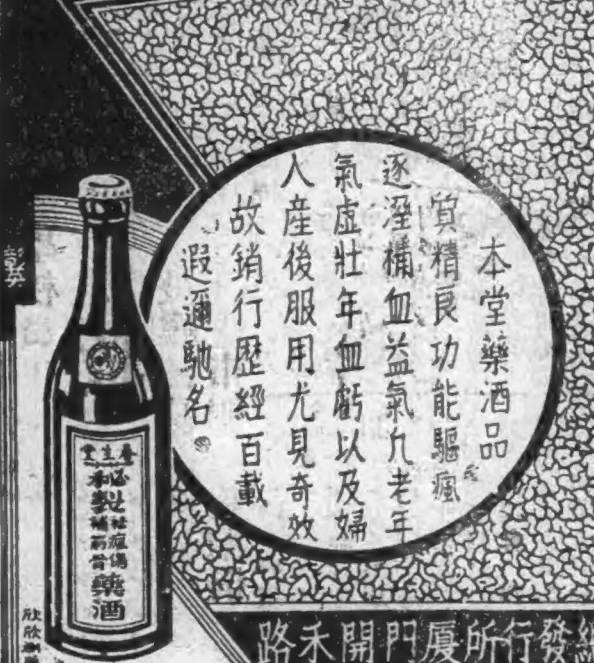 本堂藥酒品
質精良功能驅瘋
逐溼補血益氣凢老年
氣虛壯年血虧以及婦
人產後服用尤見奇效
故銷行歷經百載
遐邇馳名
春生堂
製
祛瘋傷
補筋骨
藥酒
發行所厦門開禾路
欣欣